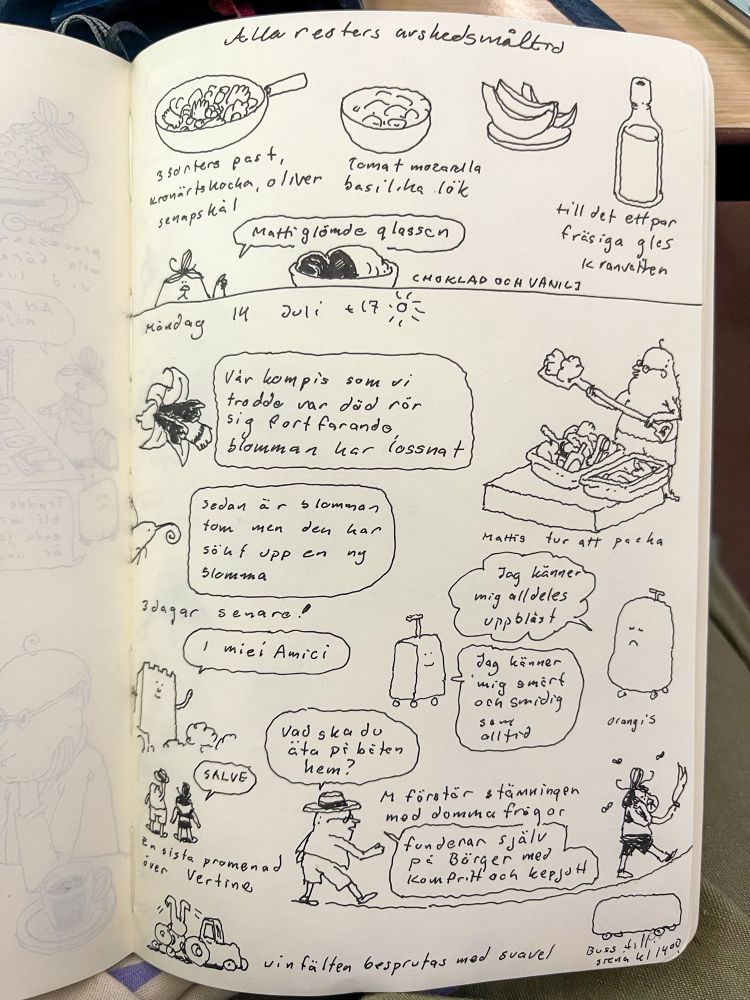 Alla resters avskedsmåltid
3 sorters past,
kronärtskocka, oliver
senapskål
Tomat mozarella
basilika lök
till det ett par
fräsiga glas
kranvatten
Matti glömde glassen
CHOKLAD OCH VANILJ
Måndag 14 Juli +17
Vår kompis som vi
trodde var död rör
sig fortfarande
blomman har lossnat
Mattis tur att packa
Sedan är blomman
tom men den har
sökt upp en ny
blomma
Jag känner
mig alldeles
uppblåst
3 dagar senare!
I miei Amici
Jag känner
mig smärt
och smidig
som
alltid
orangi's
Vad ska du
äta på båten
hem?
SALVE
M förstör stämningen
med domma frågor
En sista promenad
över Vertine
funderar själv
på Börger med
komfritt och kepjutt
Buss till
siena kl 1400
vinfälten besprutas med svavel